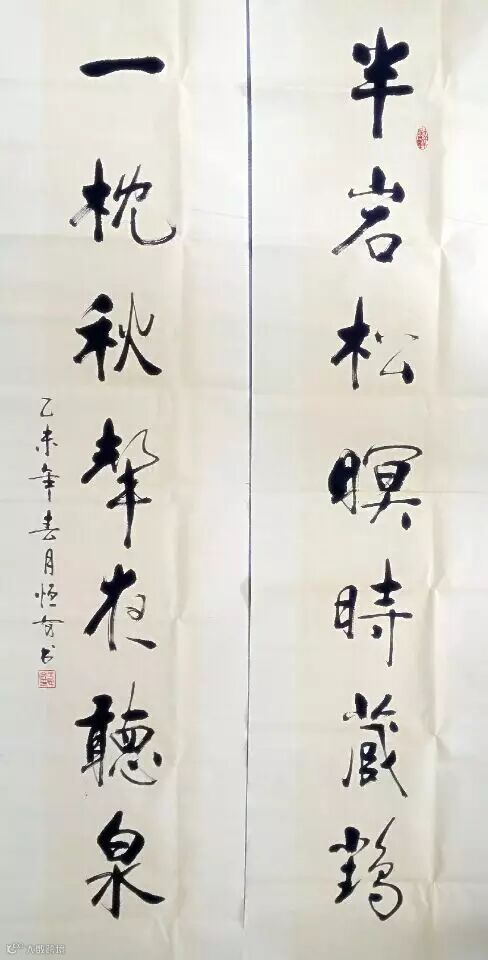 半岩松暝時藏鶴
一枕秋聲夜聽泉
乙未年春月恒谷书